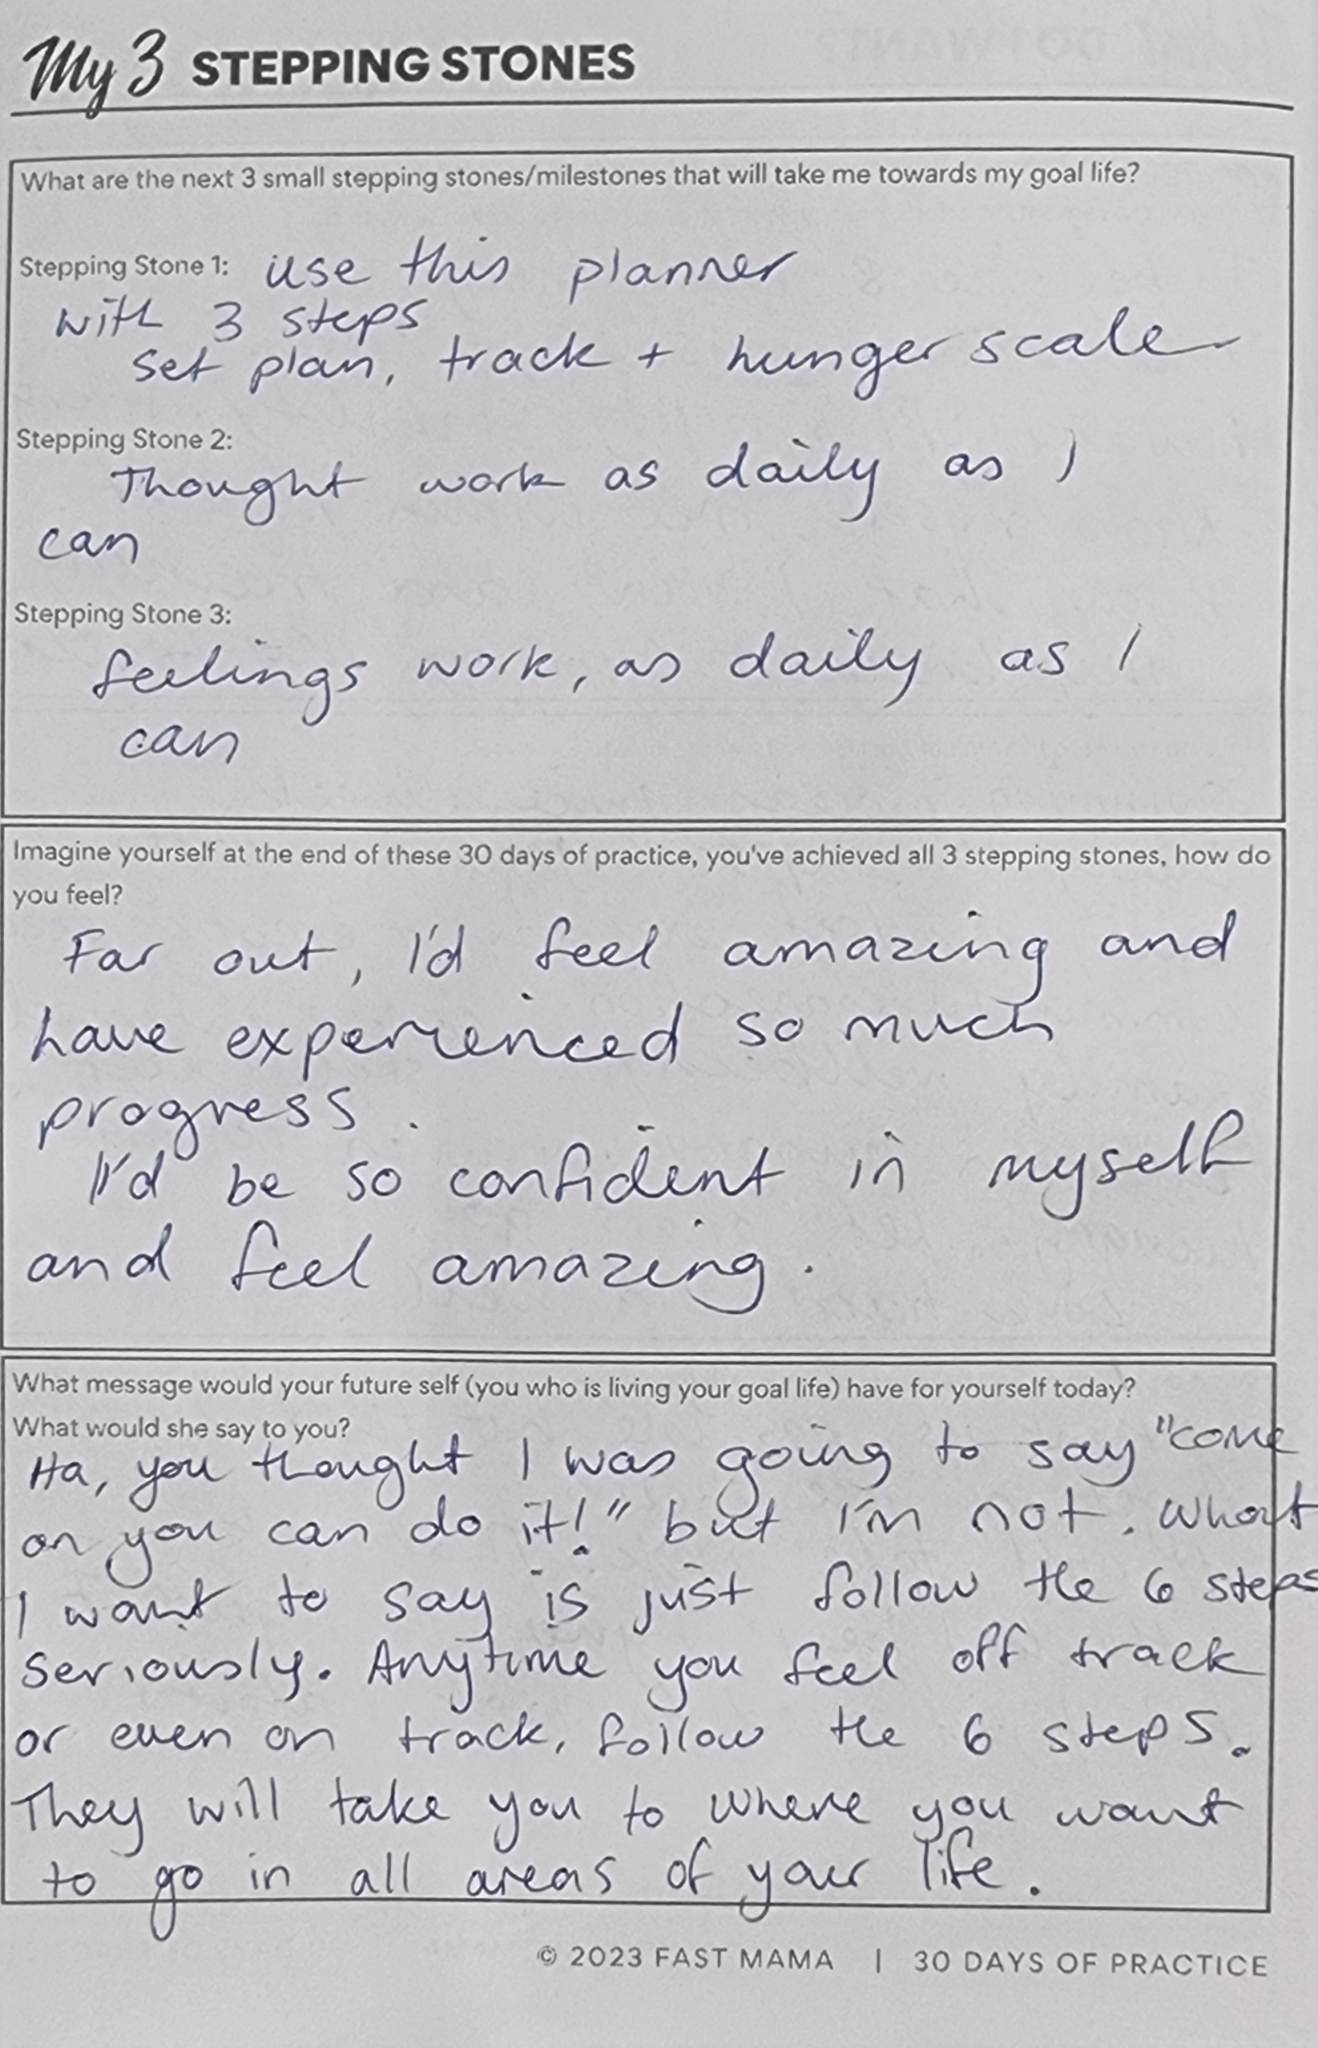 My 3 STEPPING STONES
What are the next 3 small stepping stones/milestones that will take me towards my goal life?
Stepping Stone 1: use this planner
with 3 steps
set plan, track + hunger scale
Stepping Stone 2:
Thought work as daily as I
can
Stepping Stone 3:
feelings work, as daily as I
can
Imagine yourself at the end of these 30 days of practice, you've achieved all 3 stepping stones, how do
you feel?
Far out, I'd feel amazing and
have experienced so much
progress.
I'd be so confident in myself
and feel amazing.
What message would your future self (you who is living your goal life) have for yourself today?
What would she say to you?
Ha, you thought I was going to say "come
on you can do it!" but I'm not. What
I want to say is just follow the 6 steps
seriously. Anytime you feel off track
or even on track, follow the 6 steps.
They will take you to where you want
to go in all areas of your life.
© 2023 FAST MAMA | 30 DAYS OF PRACTICE